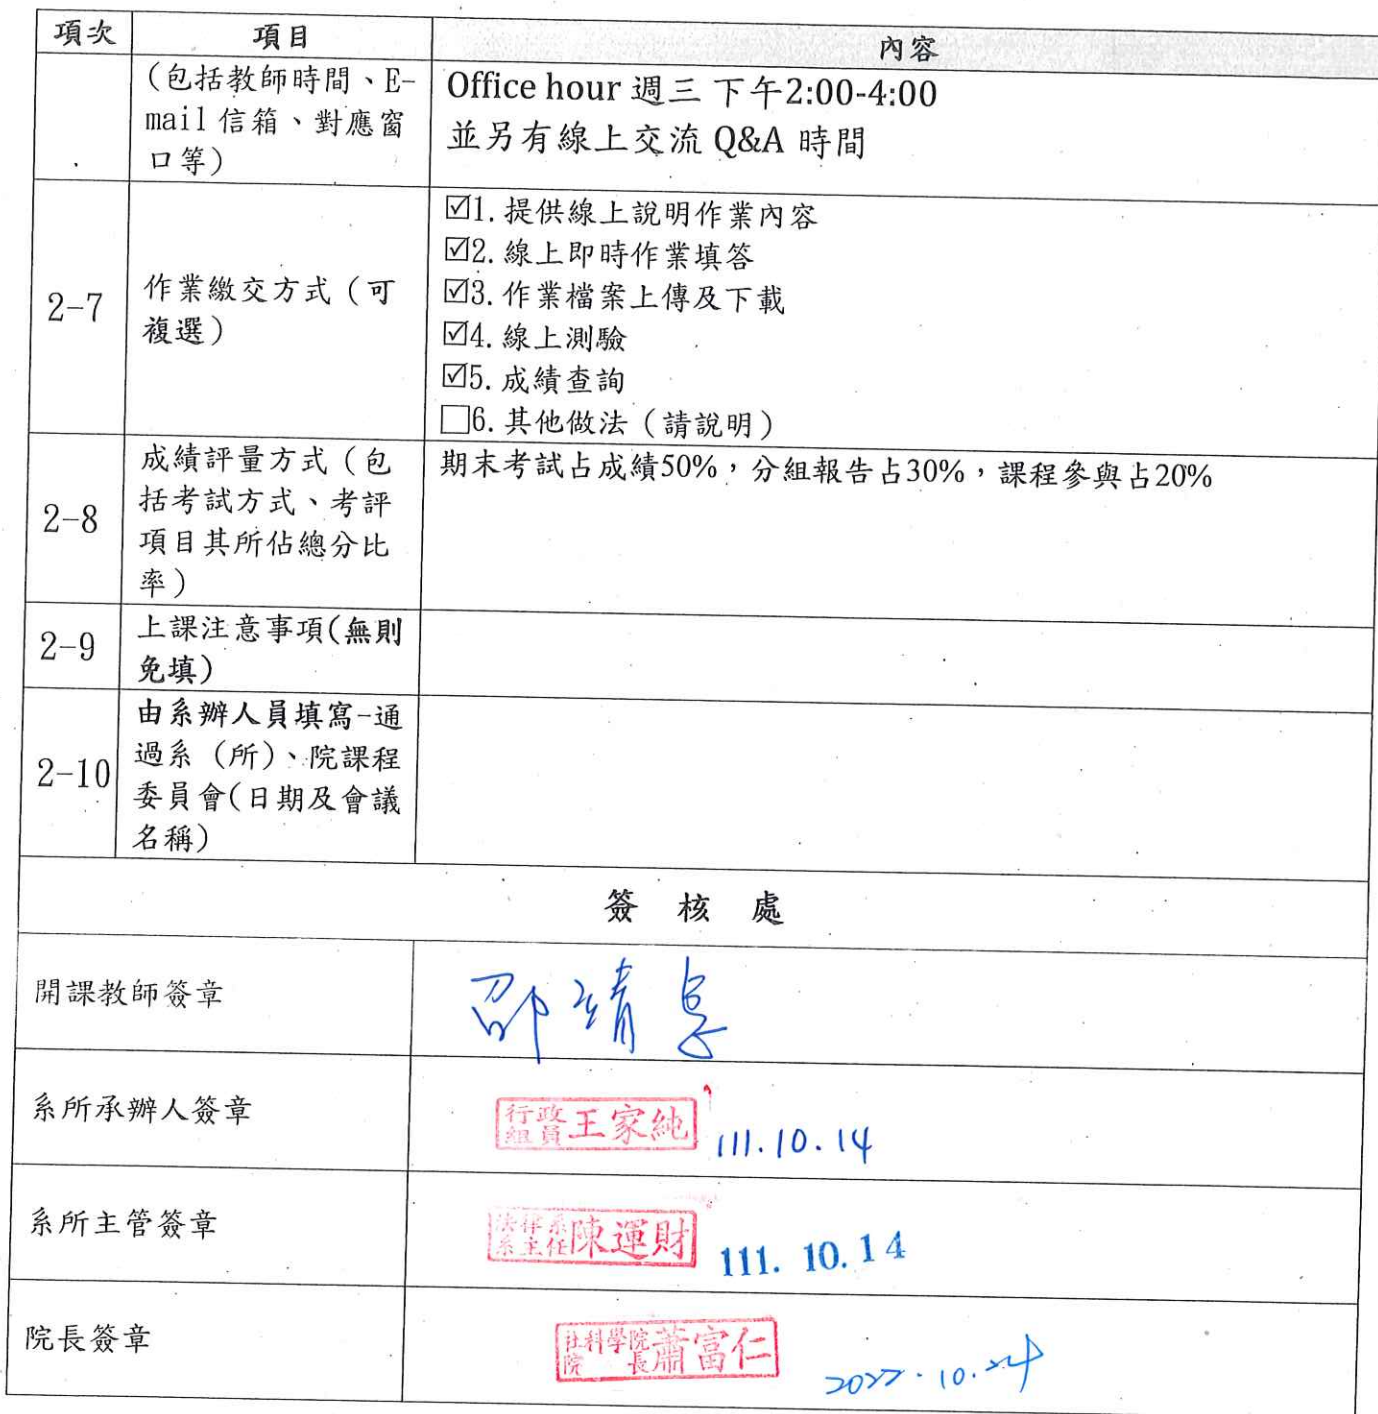 項次 項目 內容
(包括教師時間、E-
mail 信箱、對應窗
口等)
Office hour 週三 下午2:00-4:00
並另有線上交流 Q&A 時間
2-7
作業繳交方式（可
複選）
☑1. 提供線上說明作業內容
☑2. 線上即時作業填答
☑3. 作業檔案上傳及下載
☑4. 線上測驗
☑5. 成績查詢
□6. 其他做法（請說明）
2-8
成績評量方式（包
括考試方式、考評
項目其所佔總分比
率）
期末考試占成績50%，分組報告占30%，課程參與占20%
2-9
上課注意事項(無則
免填)
2-10
由系辦人員填寫-通
過系（所)、院課程
委員會(日期及會議
名稱)
簽 核 處
開課教師簽章
邵靖
系所承辦人簽章
行政
組員
王家純
111.10.14
系所主管簽章
法律系
系主任
陳運財
111. 10. 14
院長簽章
社科學院
院 長
蕭富仁
2022.10.24